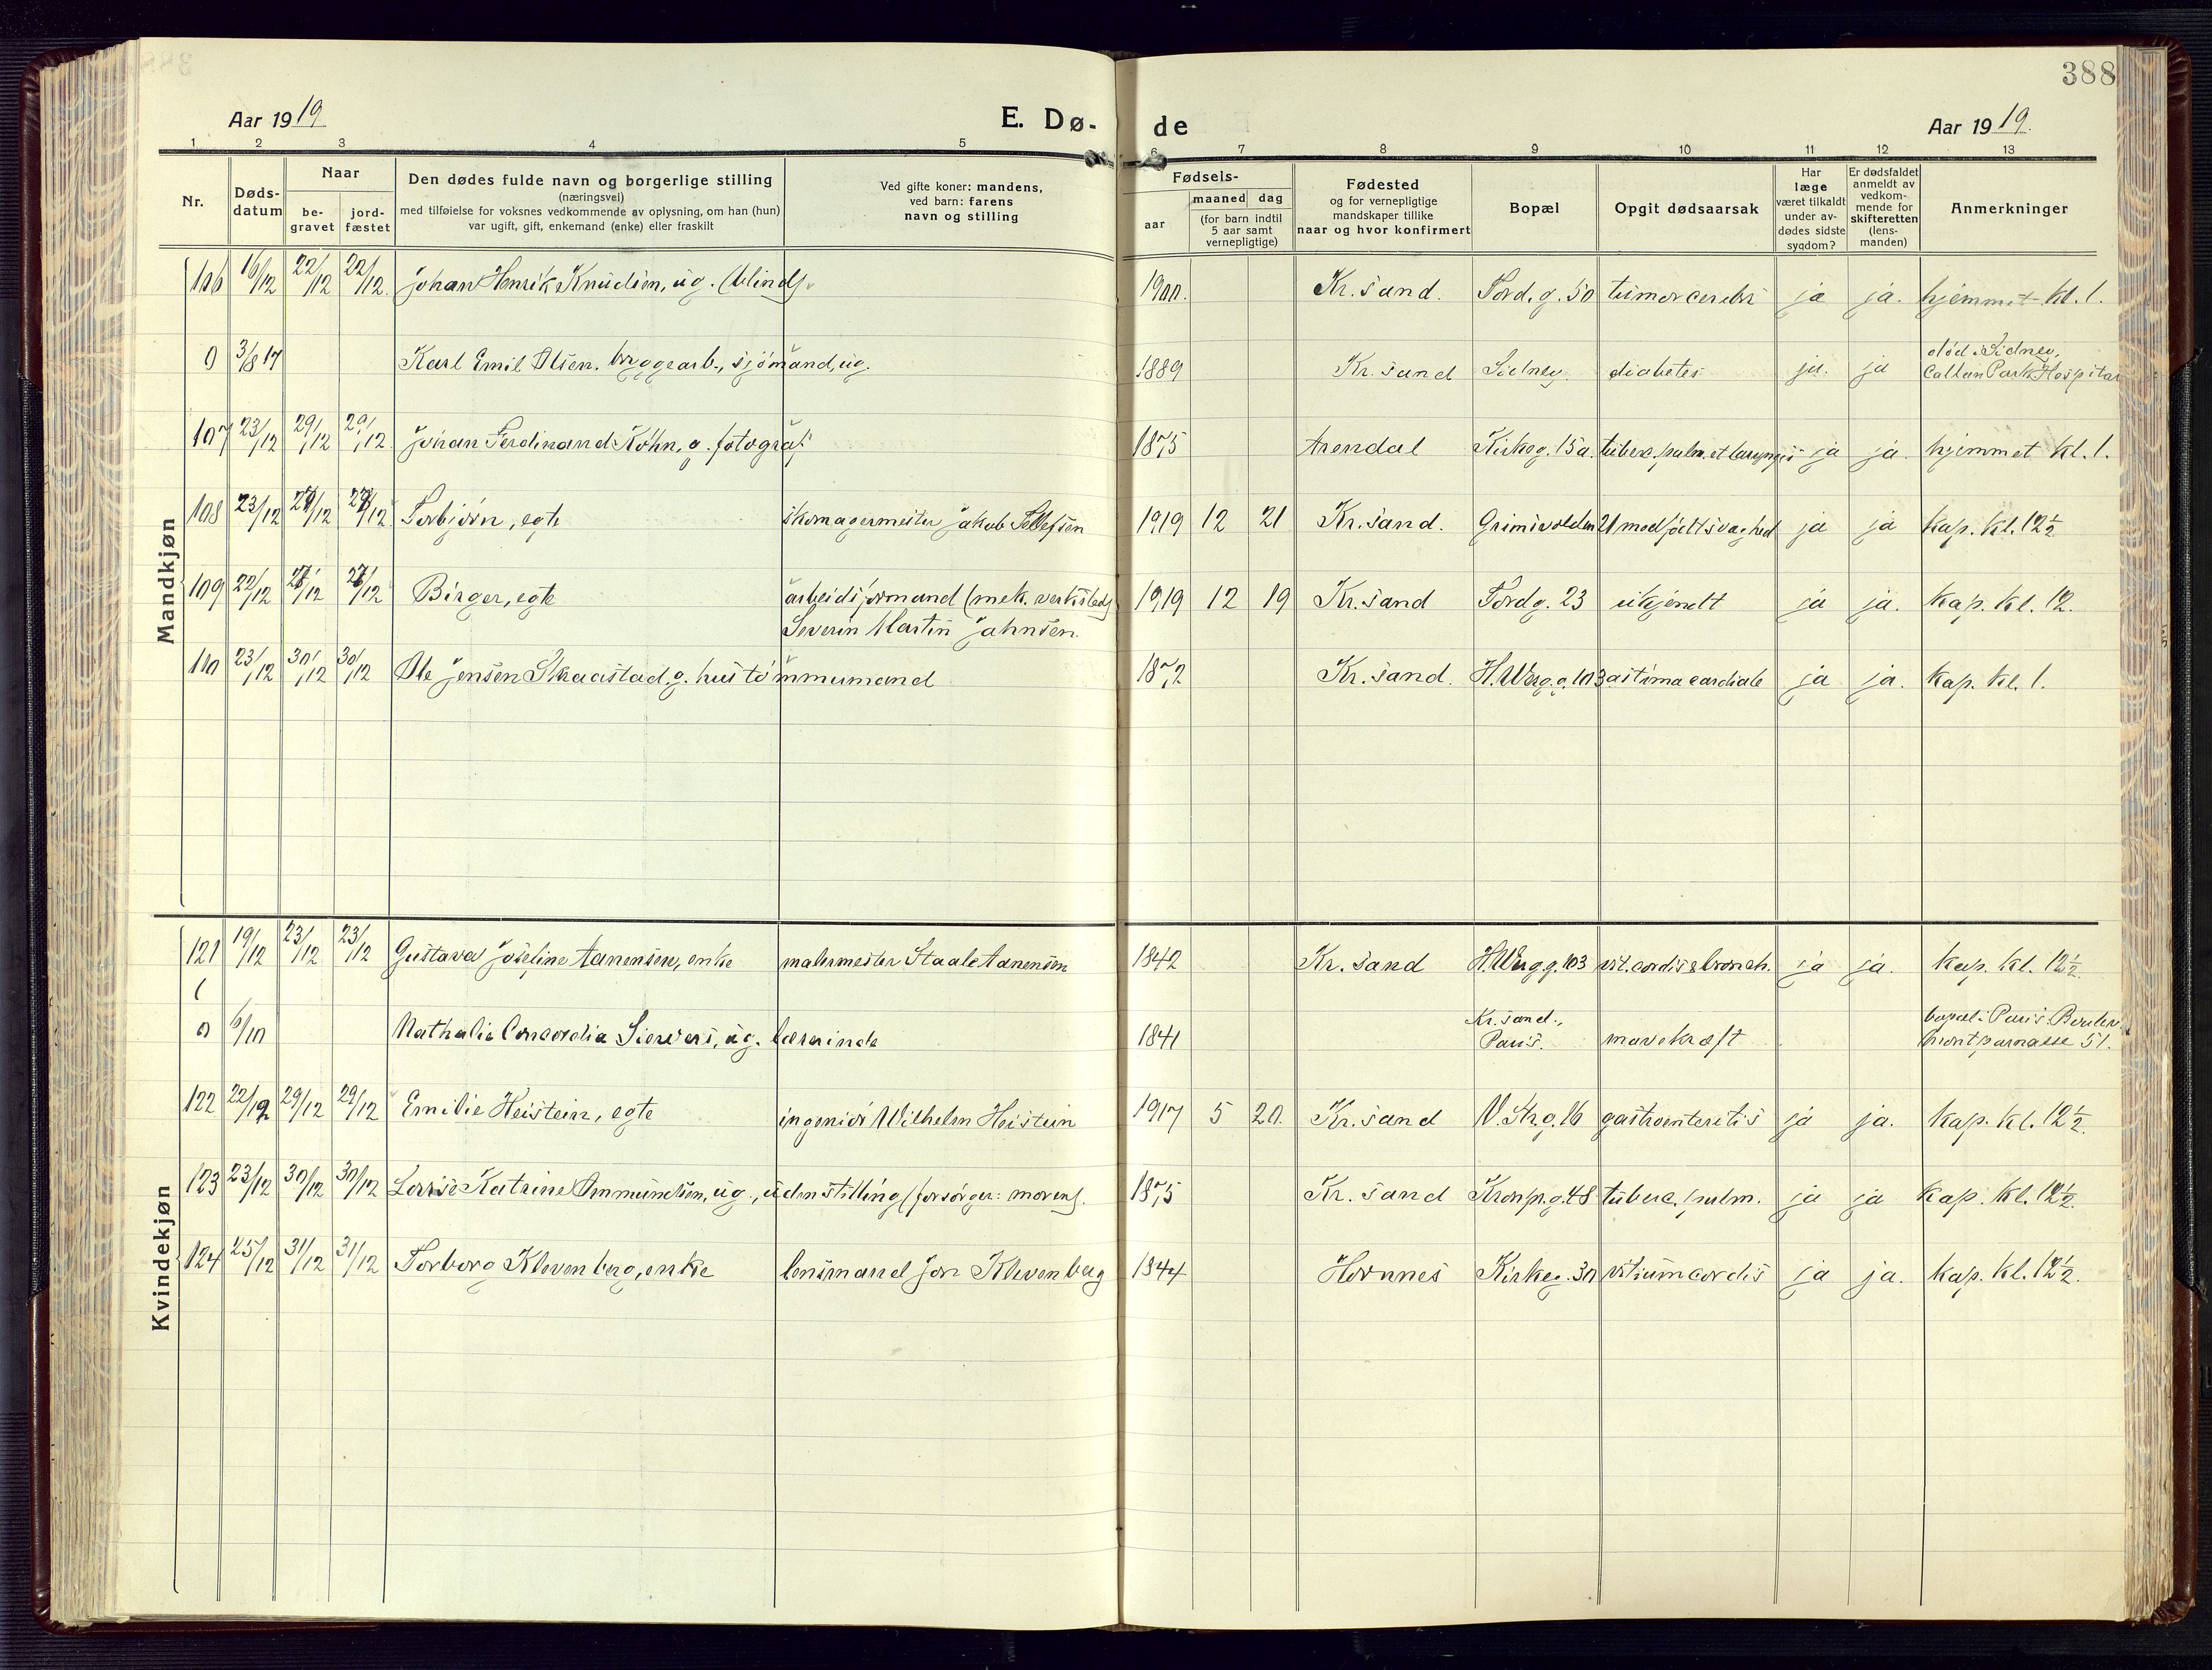 388
Aar 1919
E. Dø-
de
Aar 1919.
1 2 3 4 5 6 7 8 9 10 11 12 13
Nr.
Døds-
datum
Naar
be-
gravet
jord-
fæstet
Den dødes fulde navn og borgerlige stilling
(næringsvei)
med tilføielse for voksnes vedkommende av oplysning, om han (hun)
var ugift, gift, enkemand (enke) eller fraskilt
Ved gifte koner: mandens,
ved barn: farens
navn og stilling
Fødsels-
aar
maaned dag
(for barn indtil
5 aar samt
vernepligtige)
Fødested
og for vernepligtige
mandskaper tillike
naar og hvor konfirmert
Bopæl
Opgit dødsaarsak
Har
læge
været tilkaldt
under av-
dødes sidste
sygdom?
Er dødsfaldet
anmeldt av
vedkom-
mende for
skifteretten
(lens-
manden)
Anmerkninger
Mandkjøn
106 16/12 22/12 22/12. Johan Henrik Knudsen, ug. (blind). 1900. Kr. sand. Tord. g. 50 tumor cerebri ja ja. hjemmet kl. 1.
0 3/8 17 Karl Emil Olsen, bryggearb., sjømand, ug. 1889 Kr. sand Sidney. diabetes ja. ja død i Sidney,
Callan Park Hospital
107 23/12 29/12 29/12. Johan Ferdinand Köhn, g. fotograf 1875 Arendal Kirkeg. 15a. tuberc. pulm. et laryngis ja ja. hjemmet kl. 1.
108 23/12 /12 /12 Torbjørn, egte skomagermester Jakob Tellefsen 1919 12 21 Kr. sand. Grimsvolden 21 medfødt svaghed ja ja kap. kl. 12 1/2
109 22/12 /12 /12 Birger, egte arbeidsformand (mek. verksted) 1919 12 19 Kr. sand Tordg. 23 ukjendt ja ja. kap. kl. 12.
Severin Martin Jahnsen.
110 23/12 30/12 30/12 Ole Jensen Skaastad, g. hustømmermand 1872 Kr. sand. H. Werg. g. 103 astma cardiale ja ja. kap. kl. 1.
Kvindekjøn
121 19/12 23/12 23/12 Gustava Joseline Aanensen, enke malermester Staale Aanensen 1842 Kr. sand H. Werg. g. 103 vit. cordis & bronch. ja ja. kap. kl. 12 1/2.
0 6/10 Nathalie Concordia Sievers, ug. lærerinde 1841 Kr. sand.,
Paris. mavekræft bopæl: Paris. Boulev.
Montparnasse 51.
122 22/12 29/12 29/12 Emilie Heistein, egte ingeniør Wilhelm Heistein 1917 5 20. Kr. sand V. Str. g. 16 gastroenteritis ja ja. kap. kl. 12 1/2.
123 23/12 30/12 30/12 Lovise Katrine Ommundsen, ug., uden stilling (forsørger: moren). 1875 Kr. sand Kronpr. g. 48 tuberc. pulm. ja ja kap. kl. 12 1/2.
124 25/12 31/12 31/12 Torborg Klevenberg, enke lensmand Jon Klevenberg 1844 Hornnes Kirkeg. 30 vitium cordis ja ja. kap. kl. 12 1/2.